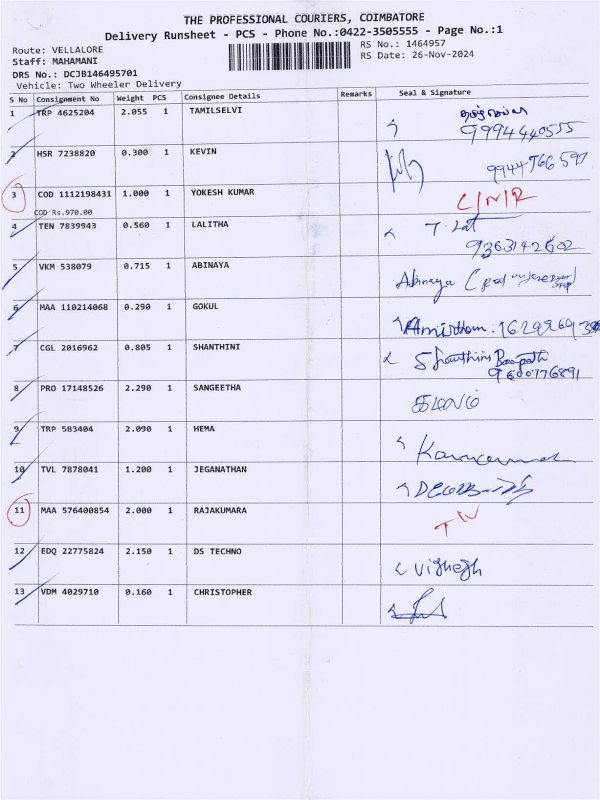 THE PROFESSIONAL COURIERS, COIMBATORE
Delivery Runsheet - PCS - Phone No.:0422-3505555 - Page No.:1
Route: VELLALORE
RS No.: 1464957
Staff: MAHAMANI
RS Date: 26-Nov-2024
DRS No.: DCJB146495701
Vehicle: Two Wheeler Delivery
S No Consignment No Weight PCS Consignee Details Remarks Seal & Signature
1 TRP 4625204 2.055 1 TAMILSELVI தமிழ்செல்வி
9994440555
2 HSR 7238820 0.300 1 KEVIN
9944766597
3 COD 1112198431 1.000 1 YOKESH KUMAR C/N/R
COD Rs.970.00
4 TEN 7839943 0.560 1 LALITHA T. Lat
9363142602
5 VKM 538079 0.715 1 ABINAYA Abinaya
6 MAA 110214068 0.290 1 GOKUL Amirtham:
7 CGL 2016962 0.805 1 SHANTHINI Shanthini
9600776891
8 PRO 17148526 2.290 1 SANGEETHA
9 TRP 583404 2.090 1 HEMA
10 TVL 7878041 1.200 1 JEGANATHAN
11 MAA 576400854 2.000 1 RAJAKUMARA
12 EDQ 22775824 2.150 1 DS TECHNO Vighegh
13 VDM 4029710 0.160 1 CHRISTOPHER